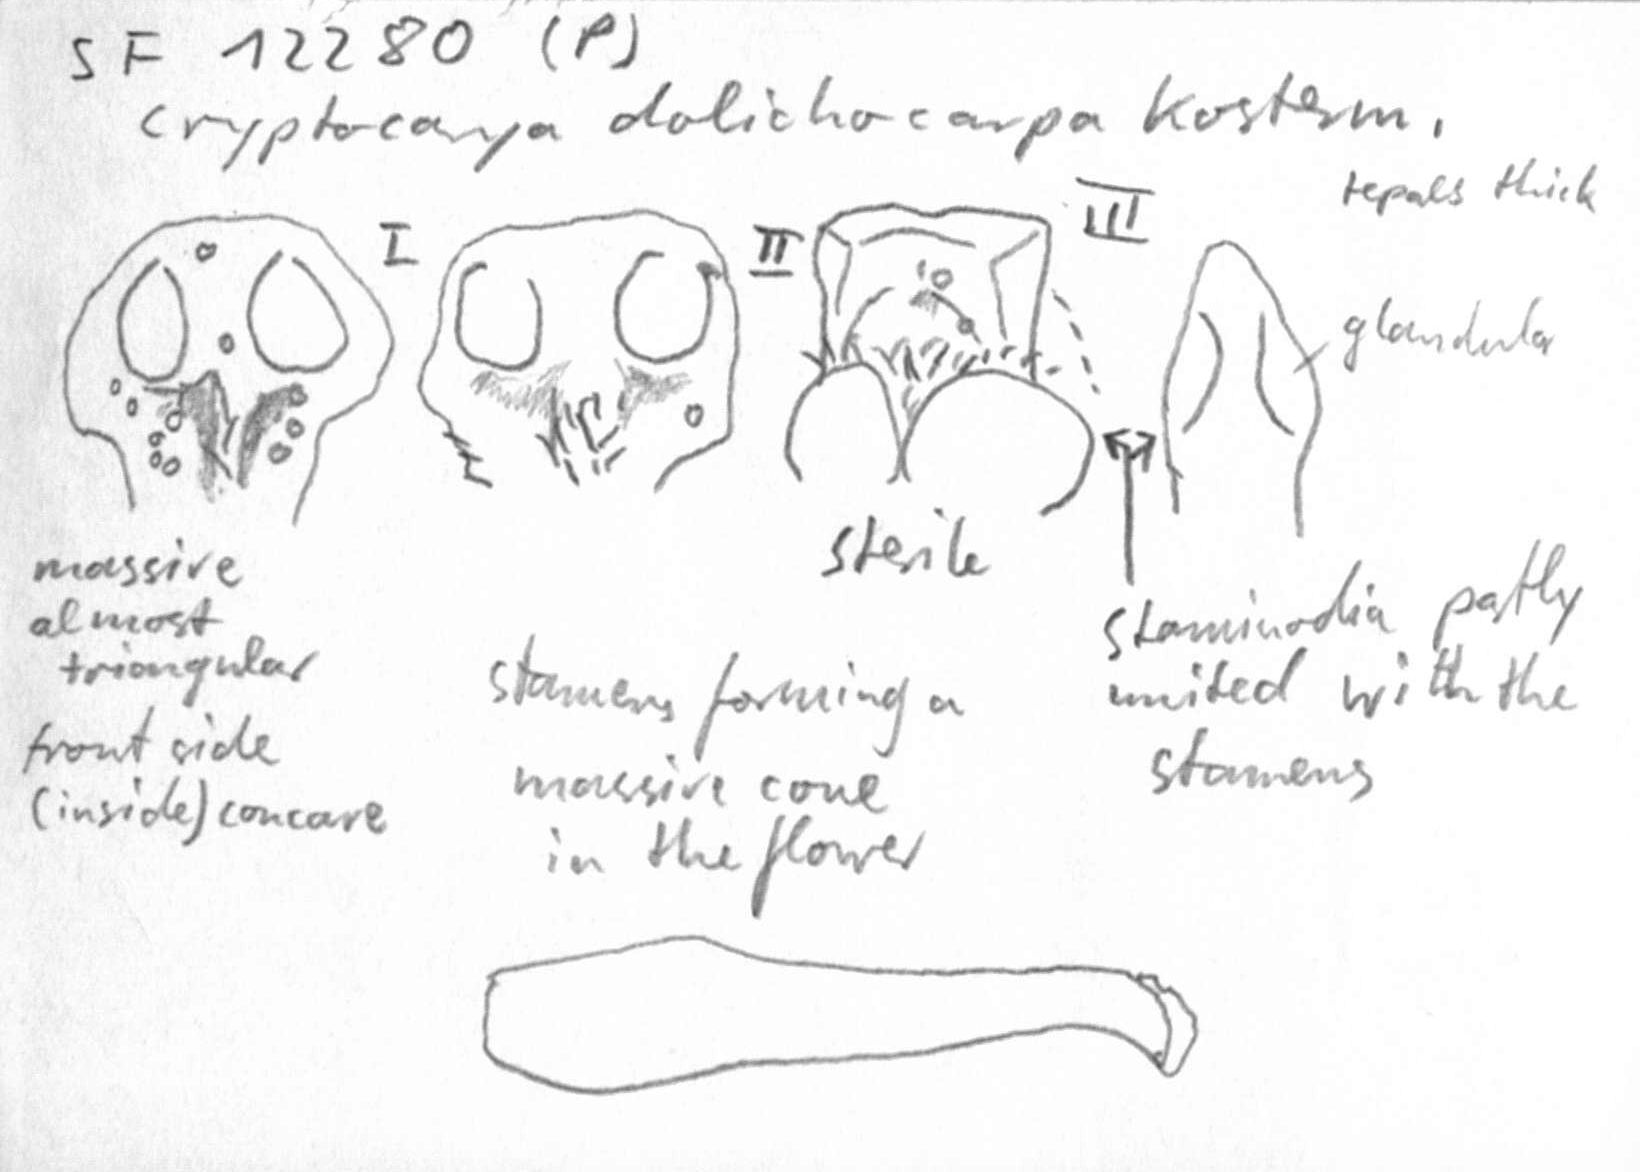 SF 12280 (P)
Cryptocarya dolichocarpa Kosterm.
tepals thick
I
II
III
glandular
sterile
massive
almost
triangular
front side
(inside) concave
stamens forming a
massive cone
in the flower
staminodia patly
united with the
stamens